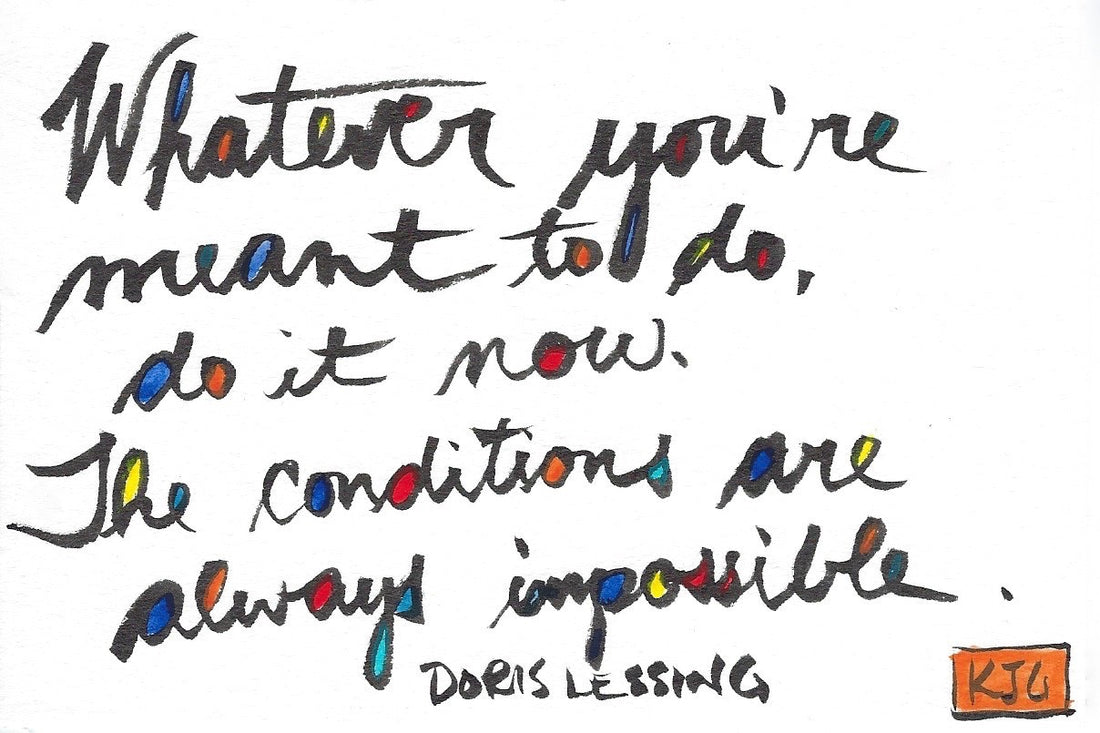 Whatever you're
meant to do,
do it now.
The conditions are
always impossible.
DORIS LESSING
KJG